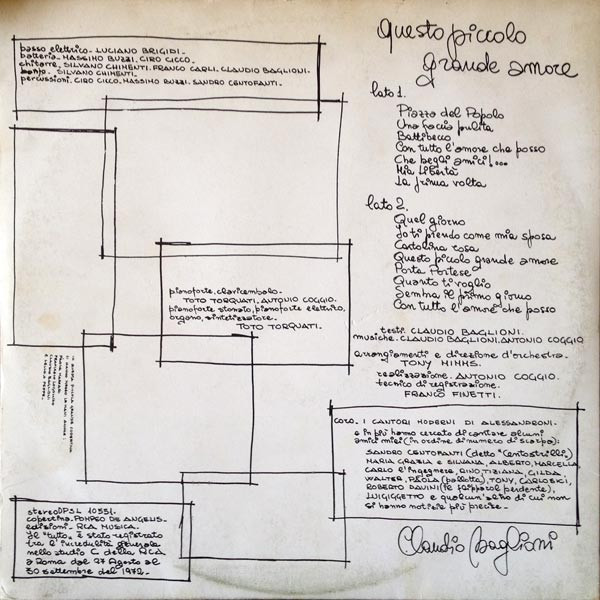 basso elettrico - LUCIANO BRIGIDI -
batteria - MASSIMO BUZZI. CIRO CICCO.
chitarre, SILVANO CHIMENTI. FRANCO CARLI. CLAUDIO BAGLIONI.
banjo. SILVANO CHIMENTI.
percussioni, CIRO CICCO. MASSIMO BUZZI. SANDRO CENTOFANTI.
Questo piccolo
grande amore
lato 1.
Piazza del Popolo
Una faccia pulita
Battibecco
Con tutto l'amore che posso
Che begli amici!...
Mia libertà
La prima volta
lato 2.
Quel giorno
Io ti prendo come mia sposa
Cartolina rosa
Questo piccolo grande amore
Porta Portese
Quanto ti voglio
Sembra il primo giorno
Con tutto l'amore che posso
testi. CLAUDIO BAGLIONI.
musiche. CLAUDIO BAGLIONI. ANTONIO COGGIO
arrangiamenti e direzione d'orchestra.
TONY MIMMS.
realizzazione. ANTONIO COGGIO.
tecnico di registrazione.
FRANCO FINETTI.
pianoforte, clavicembalo.
TOTO TORQUATI, ANTONIO COGGIO.
pianoforte stonato, pianoforte elettrico,
organo, sintetizzatore.
TOTO TORQUATI.
coro. I CANTORI MODERNI DI ALESSANDRONI.
e in più hanno cercato di cantare alcuni
amici miei (in ordine di numero di scarpa):
SANDRO CENTOFANTI (detto "Centostrilli")
MARIA GRAZIA e SILVANA, ALBERTO, MARCELLA,
CARLO l'ingegnere, RINO, TIZIANA, GILDA,
WALTER, PAOLA (pallotta), TONY, CARLO BICI,
ROBERTO DAVINI (il falsipool perdente),
LUIGIGETTO e qualcun'altro di cui non
si hanno notizie più precise.
stereo DPSL 10551.
copertina. POMPEO DE ANGELIS.
edizioni. RCA MUSICA.
Il "tutto" è stato registrato
tra l'incredulità generale
nello studio C della RCA
a Roma dal 27 Agosto al
30 settembre del 1972.
Claudio Baglioni